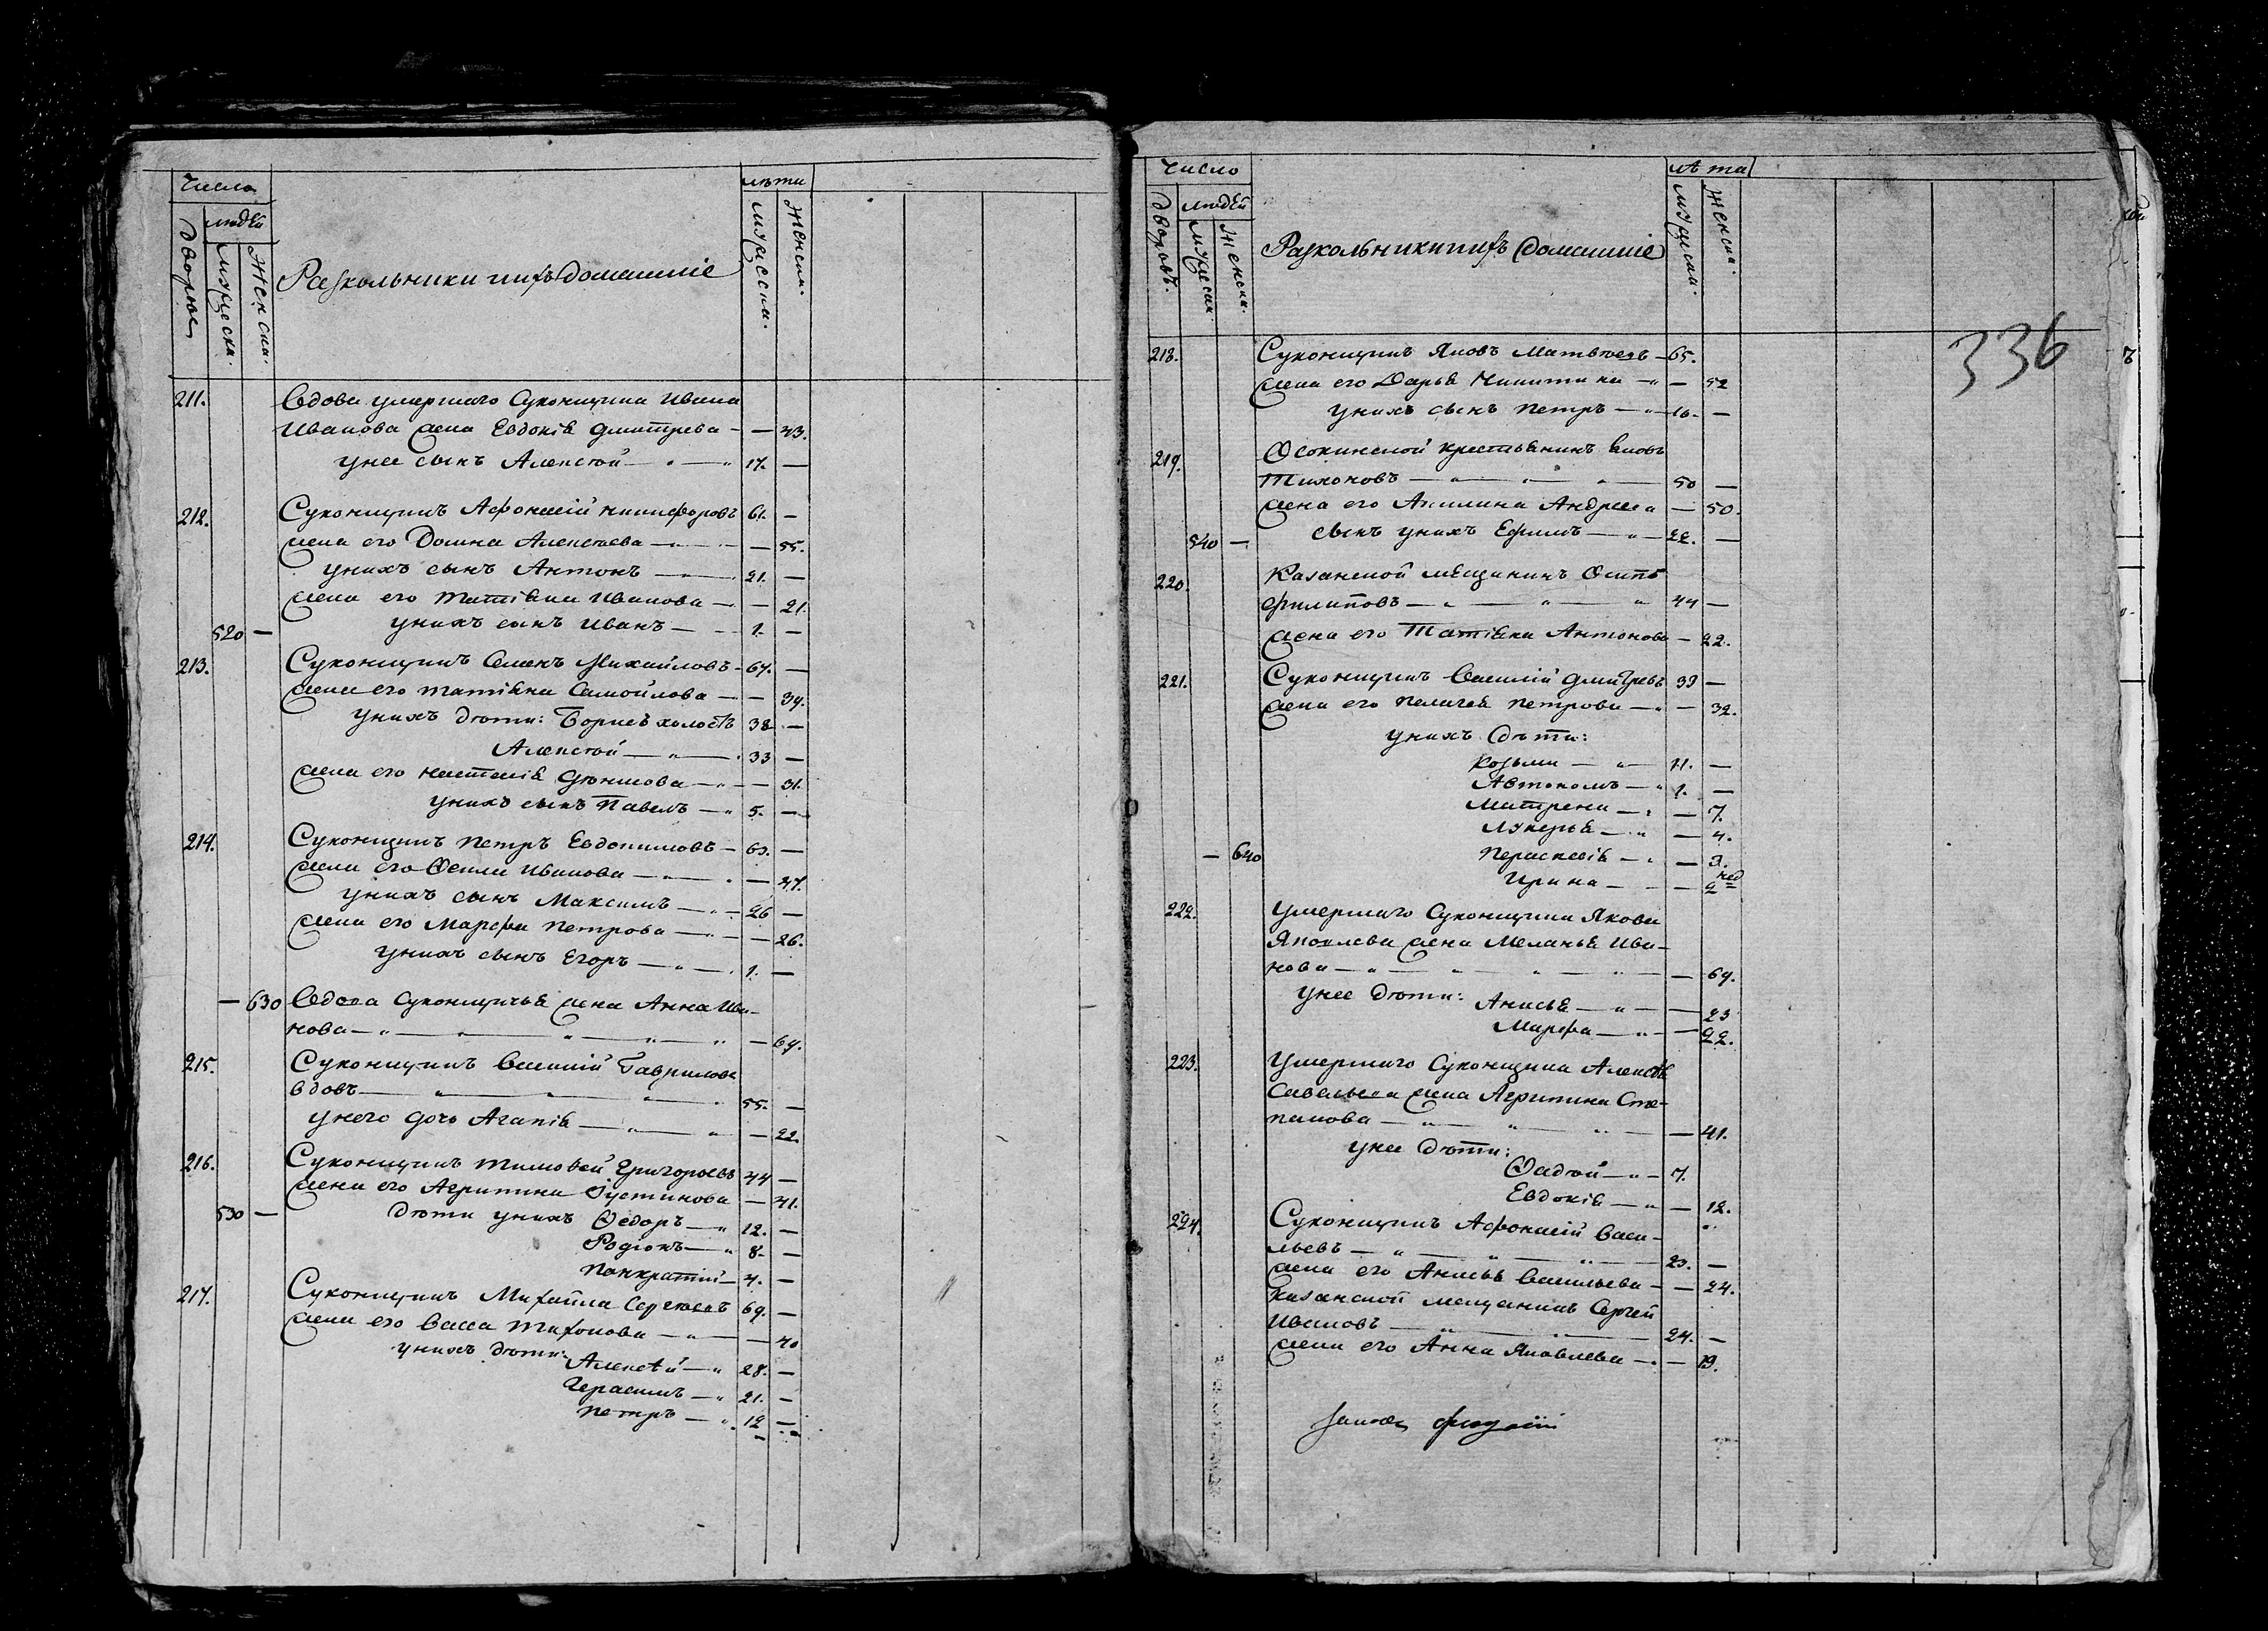 число
людей
дворовъ
мужеска.
женска.
Раскольники и ихъ домашніе
лѣта
мужеска.
женска.
211. Вдова умершаго Суконщика Ивана
Иванова жена Евдокія Дмитрева — — 43.
у нее сынъ Алексѣй — 17. —
212. Суконщикъ Афонасій Никифоровъ 61. —
жена его Домна Алексѣева — — 55.
у нихъ сынъ Антонъ — 21. —
жена его Татіяна Иванова — — 21.
520 — у нихъ сынъ Иванъ — 1. —
213. Суконщикъ Семенъ Михайловъ — 67. —
жена его Татіяна Самойлова — — 39.
у нихъ дѣти: Борисъ холостъ 38 —
Алексѣй — 33 —
жена его Настасія — — 31.
у нихъ сынъ Павелъ — 5. —
214. Суконщикъ Петръ Евдокимовъ — 63. —
жена его Ѳекла Иванова — — 47.
у нихъ сынъ Максимъ — 26 —
жена его Марфа Петрова — — 26.
у нихъ сынъ Егоръ — 1. —
— 630 Вдова Суконщичья жена Анна Ива-
нова — — 69.
215. Суконщикъ Василій Гавриловъ
вдовъ — 55. —
у него дочь Агапія — — 22.
216. Суконщикъ Тимоѳей Григорьевъ 44 —
жена его Агрипина Іустинова — 41.
530 — дѣти у нихъ Ѳедоръ — 12. —
Родіонъ — 8. —
Панкратій — 4. —
217. Суконщикъ Михайла Сергѣевъ 69. —
жена его Васса Тихонова — — 40
у нихъ дѣти: Алексѣй — 28. —
Герасимъ — 21. —
Петръ — 12 —
число
людей
дворовъ.
мужеска
женска.
Раскольники и ихъ домашніе
лѣта
мужеска.
женска.
336
218. Суконщикъ Яковъ Матвѣевъ — 65.
жена его Дарья Никитина — — 52
у нихъ сынъ Петръ — 16. —
219. Осокинской крестьянинъ Яковъ
Тихоновъ — 50 —
жена его Акилина Андреева — 50.
540 — сынъ у нихъ Ефимъ — 22. —
220. Казанской мещанинъ Осипъ
Филиповъ — 44 —
жена его Татіяна Антонова — 22.
221. Суконщикъ Василій Дмитревъ 33 —
жена его Пелагея Петрова — — 32.
у нихъ дѣти:
Козьма — 11. —
Автономъ — 1. —
Матрена — — 7.
Лукерья — — 4.
— 640 Пераскевія — — 3.
Ирина — — 2 нед
222. Умершаго Суконщика Якова
Яковлева жена Меланья Ива-
нова — — 69.
у нее дѣти: Анисья — — 23
Марфа — — 22.
223. Умершаго Суконщика Алексѣя
Савельева жена Агрипина Сте-
панова — — 41.
у нее дѣти:
Ѳадѣй — 7.
Евдокія — — 12.
224. Суконщикъ Афонасій Васи-
льевъ — 23. —
жена его Анисья Васильева — — 24.
Казанской мещанинъ Сергей
Ивановъ — 24. —
жена его Анна Яковлева — — 19.